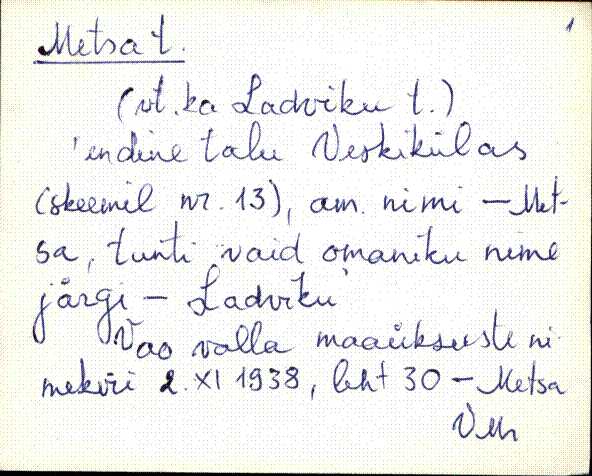 1
Metsa t.
(vt. ka Ladviku t.)
'endine talu Veskikülas
(skeemil nr. 13), am. nimi – Met-
sa, tunti vaid omaniku nime
järgi – Ladviku'
Vao valla maaüksuste ni-
mekiri 2. XI 1938, leht 30 – Metsa